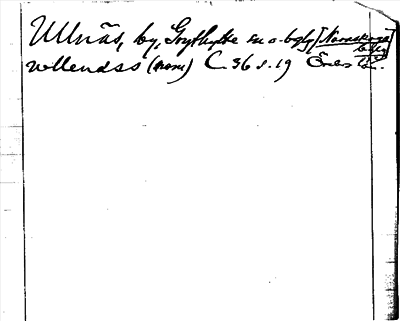 Ullnäs, by, Grythytte sn o. bglg [Noraskoga bglg]
wllendss (nom) C. 36 s. 19 Öreb l.